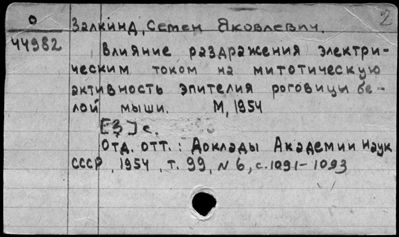 О
44982
2
Залкинд, Семен Яковлевич.
Влияние раздражения электри-
ческим током на митотическую
активность эпителия роговицы бе-
лой мыши. М, 1954
[3] с.
Отд. отт.: Доклады Академии наук
СССР, 1954, т. 99, N 6, с. 1091-1093